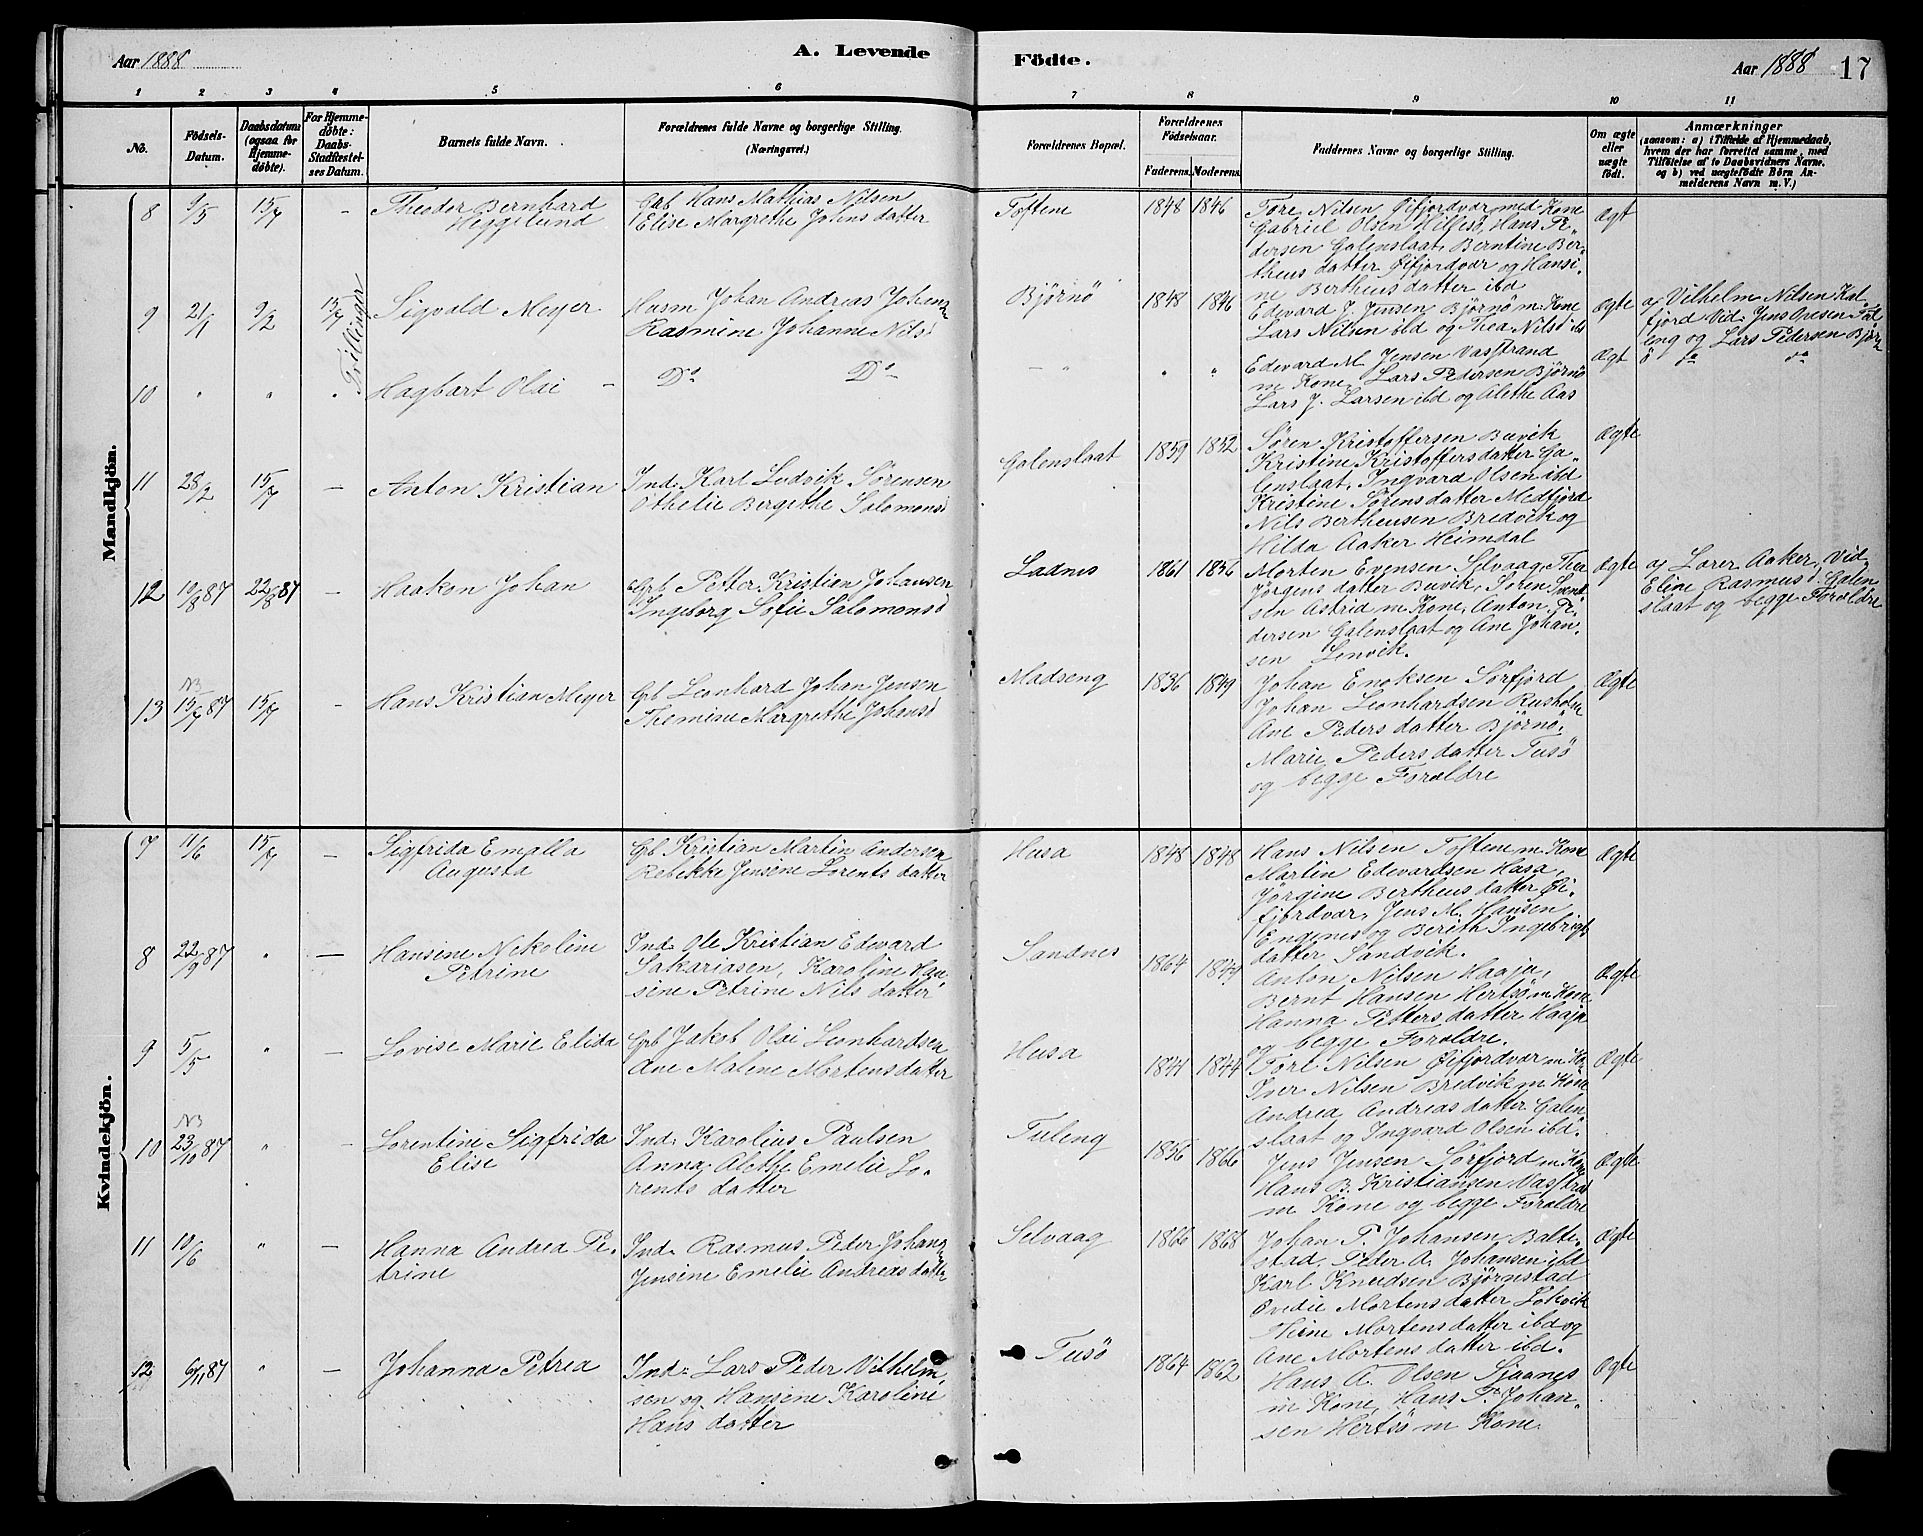 Aar 1888
A. Levende
Födte.
Aar 1888 17
1 2 3 4 5 6 7 8 9 10 11
No.
Födsels-Datum.
Daabsdatum (ogsaa for Hjemme-döbte).
For Hjemme-döbte: Daabs-Stadfæstel-ses Datum.
Barnets fulde Navn.
Forældrenes fulde Navne og borgerlige Stilling.
(Næringsvei.)
Forældrenes Bopæl.
Forældrenes Födselsaar.
Faderens. Moderens.
Faddernes Navne og borgerlige Stilling.
Om ægte eller uægte födt.
Anmærkninger
(saasom: a) i Tilfælde af Hjemmedaab,
hvem der har forrettet samme, med
Tilföielse af to Daabsvidners Navne,
og b) ved uægtefödte Börn An-
melderens Navn m. V.)
Mandkjön.
8 9/5 15/7 – Theodor Bernhard
Heggelund
Hans Mathias Nilsen
Elise Margrethe Johnsdatter
Toftene 1848 1846
Tore Nilsen Øifjordvær med Kone
Gabriel Olsen Hilsesö, Hans Pe-
dersen Galenslaat, Berntine Ber-
theusdatter Øifjordvær og Hansi-
ne Bertheusdatter ibd
Ægt
Tvillinger
9 21/1 9/2 15/7 Sigvald Meyer
Husm Johan Andreas Johans
Rasmine Johanne Nilsd
Björnö 1848 1846
Edevard J. Jensen Björnö m. Kone
Lars Nilsen ibd og Thea Nilsd ibd
Ægte
a) Vilhelm Nilsen Kal-
fjord Vid: Jens Olesen Tu-
leng og Lars Pedersen Björn
ö
10 " " " Hagbart Olai – Do Do
– " " "
Edevard M. Jensen Vasstrand
m Kone, Lars Pedersen Björnö
Lars J. Larsen ibd og Alethe Aas
Ægt do do
11 28/2 15/7 – Anton Kristian
Ind. Karl Ludvik Sörensen
Othelie Bergithe Salomonsd
Galenslaat 1859 1852
Sören Kristoffersen Buvik
Kristine Kristoffersdatter Ga-
lenslaat, Ingvard Olsen ibd
Kristine Sörensdatter Medfjord
Nils Bertheusen Bredvik og
Hilda Aaker Heimdal
Ægte
12 10/8 87 22/8 87 – Haakon Johan
Gb Petter Kristian Johansen
Ingeborg Sofie Salomonsd
Ladnes 1861 1856
Morten Evensen Selvaag, Thea
Jörgensdatter Buvik, Sören Svend
sen Astrid m Kone, Anton Pe-
dersen Galenslaat og Ane Johan-
sen Lenvik.
Ægte
a) Lorer Aaker, Vid-
Eline Rasmusd. Galen
slaat og begge Foræeldre
13 NB 15/7 87 15/7 – Hans Kristian Meyer
Gb Leonhard Johan Jensen
Themine Margrethe Johansd
Madseng 1836 1849
Johan Enoksen Sörfjord
Johan Leonhardsen Rusholm
Ane Pedersdatter Björnö,
Marie Pedersdatter Tusö
og begge Forældre
Ægte
Kvindekjön.
7 11/6 15/7 – Sigfrida Emalla
Augusta
Gb Kristian Martin Andersen
Rebekke Jensine Lorentsdatter
Husa 1848 1848
Hans Nilsen Toftene m Kone
Martin Edevardsen Husa,
Jörgine Bertheusdatter Øi-
fjordvær, Jens M. Hansen
Engenes og Berith Ingebrigts
datter Sandvik.
Ægte
8 22/9 87 " – Hansine Nekoline
Petrine
Ind. Ole Kristian Edevard
Sakariasen, Karoline Han-
sine Petrine Nilsdatter
Sandnes 1864 1849
Anton Nilsen Haaja,
Bernt Hansen Hertsö m Kone
Hanna Pettersdatter Haaja
og begge Forældre.
Ægte
9 5/5 " – Lovise Marie Elida
Gb Jakob Olai Leonhardsen
Ane Malene Mortensdatter
Husa 1841 1844
Tore Nilsen Øifjordvær m Ko
Iver Nilsen Bredvik m Kone
Andrea Andreasdatter Galen-
slaat og Ingvard Olsen ibd.
Ægte
10 NB 23/10 87 " – Lorentine Sigfrida
Elise
Ind. Karolius Paulsen
Anna Alethe Emelie Lo-
rentsdatter
Tuleng 1856 1866
Jens Jensen Sörfjord m Kone
Hans B. Kristiansen Vasstrand
m Kone og begge Forældre
Ægte
11 10/6 " – Hanna Andrea Pe-
trine
Ind. Rasmus Peder Johans
Jensine Emelie Andreasdatter
Selvaag 1866 1868
Johan P. Johansen Balte-
stad, Peder A. Johansen ibd
Karl Knudsen Björnestad
Ovedie Mortensdatter Lekvik
Mortensdatter ibd og
Ane Mortensdatter ibd.
Ægte
12 6/11 87 " – Johanna Petrea
Ind. Lars Peder Vilhelm-
sen og Hansine Karoline
Hansdatter
Tusö 1864 1862
Hans A. Olsen Sjaanes
m Kone, Hans P. Johan-
sen Hertsö m Kone.
Ægte